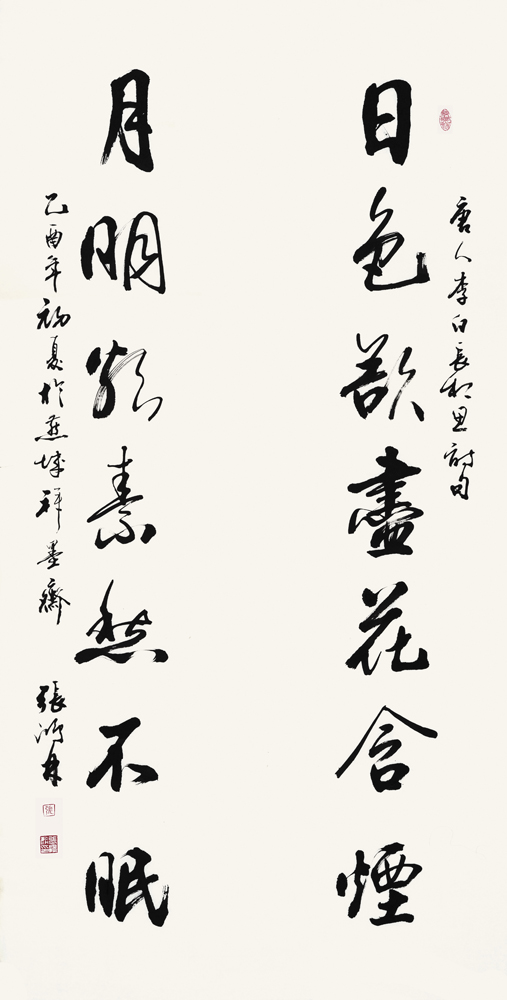 唐人李白長相思詩句
日色欲盡花含煙
月明欲素愁不眠
乙酉年初夏於城祥墨齋
張